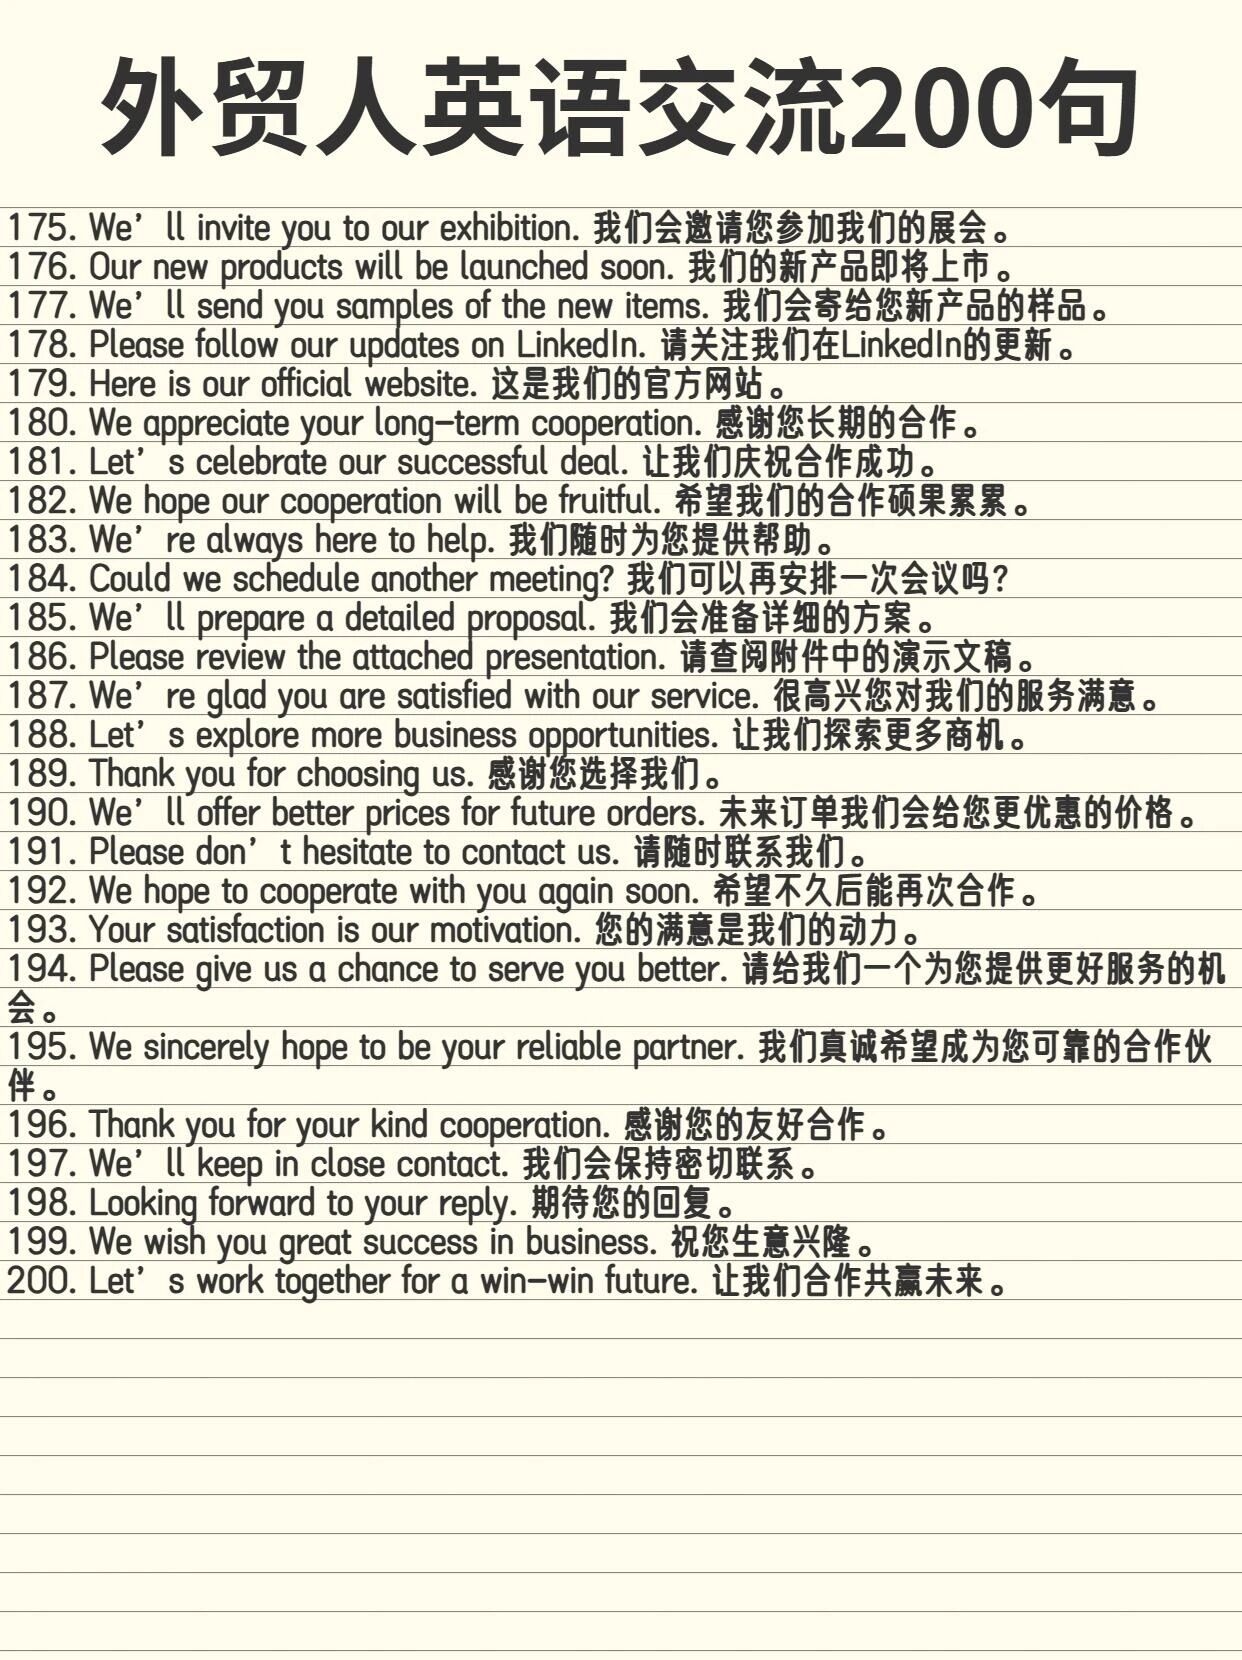 外贸人英语交流200句
175. We’ll invite you to our exhibition. 我们会邀请您参加我们的展会。
176. Our new products will be launched soon. 我们的新产品即将上市。
177. We’ll send you samples of the new items. 我们会寄给您新产品的样品。
178. Please follow our updates on LinkedIn. 请关注我们在LinkedIn的更新。
179. Here is our official website. 这是我们的官方网站。
180. We appreciate your long-term cooperation. 感谢您长期的合作。
181. Let’s celebrate our successful deal. 让我们庆祝合作成功。
182. We hope our cooperation will be fruitful. 希望我们的合作硕果累累。
183. We’re always here to help. 我们随时为您提供帮助。
184. Could we schedule another meeting? 我们可以再安排一次会议吗?
185. We’ll prepare a detailed proposal. 我们会准备详细的方案。
186. Please review the attached presentation. 请查阅附件中的演示文稿。
187. We’re glad you are satisfied with our service. 很高兴您对我们的服务满意。
188. Let’s explore more business opportunities. 让我们探索更多商机。
189. Thank you for choosing us. 感谢您选择我们。
190. We’ll offer better prices for future orders. 未来订单我们会给您更优惠的价格。
191. Please don’t hesitate to contact us. 请随时联系我们。
192. We hope to cooperate with you again soon. 希望不久后能再次合作。
193. Your satisfaction is our motivation. 您的满意是我们的动力。
194. Please give us a chance to serve you better. 请给我们一个为您提供更好服务的机
会。
195. We sincerely hope to be your reliable partner. 我们真诚希望成为您可靠的合作伙
伴。
196. Thank you for your kind cooperation. 感谢您的友好合作。
197. We’ll keep in close contact. 我们会保持密切联系。
198. Looking forward to your reply. 期待您的回复。
199. We wish you great success in business. 祝您生意兴隆。
200. Let’s work together for a win-win future. 让我们合作共赢未来。